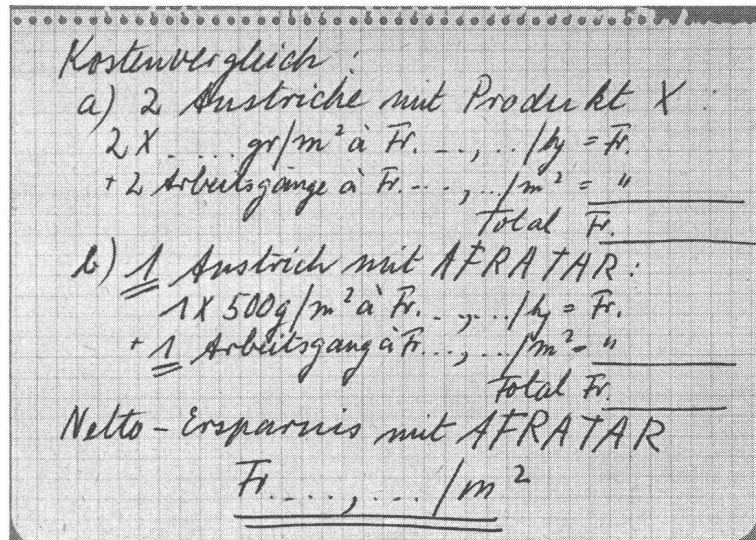 Kostenvergleich:
a) 2 Anstriche mit Produkt X
2 X ..... gr/m² à Fr. ..., .../kg = Fr.
+ 2 Arbeitsgänge à Fr. ..., .../m² = "
Total Fr.
b) 1 Anstrich mit AFRATAR:
1 X 500g/m² à Fr. ..., .../kg = Fr.
+ 1 Arbeitsgang à Fr. ..., .../m² = "
Total Fr.
Netto-Ersparnis mit AFRATAR
Fr. ...., .... /m²